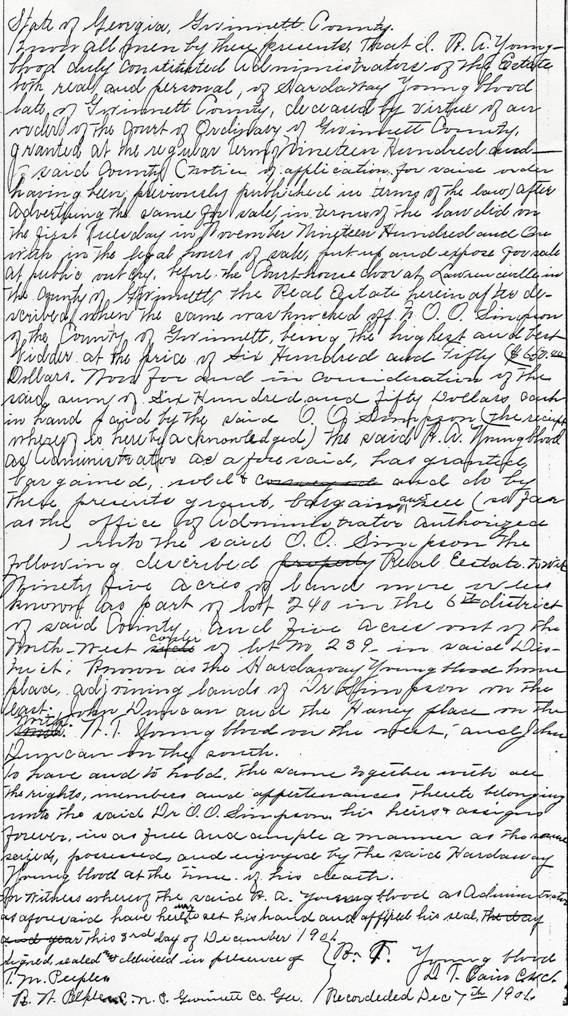 State of Georgia, Gwinnett County.
Know all men by these presents, That I. R. A. Young-
blood duly constituted Administrators of the Estate
both real and personal, of Hardaway Youngblood
late, of Gwinnett County, deceased by virtue of an
order, of the Court of Ordinary of Gwinnett County,
granted at the regular term, of Nineteen Hundred and
of said County (notice of application for said order
having been previously published in terms of the law) after
advertising the same for sale, in terms of the law did on
the first Tuesday in November Nineteen Hundred and One
with in the legal hours of sale, put up and expose for sale
at public outcry, before the Court house door at Lawrenceville in
the County of Gwinnett, the Real Estate herein after de-
scribed, when the same was knocked off to O. O. Simpson
of the County of Gwinnett, being the highest and best
bidder at the price of Six Hundred and Fifty ($650.00
Dollars. Now for and in consideration of the
said sum of Six Hundred and fifty Dollars cash
in hand paid by the said O. O. Simpson (the receipt
whereof is hereby acknowledged) the said R. A. Youngblood
as Administrator as aforesaid, has granted
bargained, sold & conveyed and do by
these presents grant, bargain and sell (so far
as the office of Administrator authorized
) unto the said O. O. Simpson the
following described property Real Estate. to wit
Ninety five acres of land more or less
known as part of lot 240 in the 6th district
of said County, and Five acres out of the
North-west corner of lot No 239- in said Dis-
trict; Known as the Hardaway Youngblood home
place, adjoining lands of Dr Simpson on the
east. John Duncan and the Haney place on the
North. W. T. Youngblood on the west, and John
Duncan on the south.
To have and to hold, the same together with all
the rights, members and appertenances thereto belonging
unto the said Dr O. O. Simpson, his heirs & assigns
forever, in as full and ample a manner as the same
seized, possessed and enjoyed by the said Hardaway
Youngblood at the time of his death.
In Witness whereof the said R. A. Youngblood as Administrator
as aforesaid have hereunto set his hand and affixed his seal, the day
and year this 3rd day of December 1901.
Signed, sealed & delivered in presence of
T. M. Peeples
R. N. Peeples N. P. Gwinnett Co. Ga.
R. T. Youngblood
D. T. Cain C.S.C.
Recordeded Dec 7th 1901.